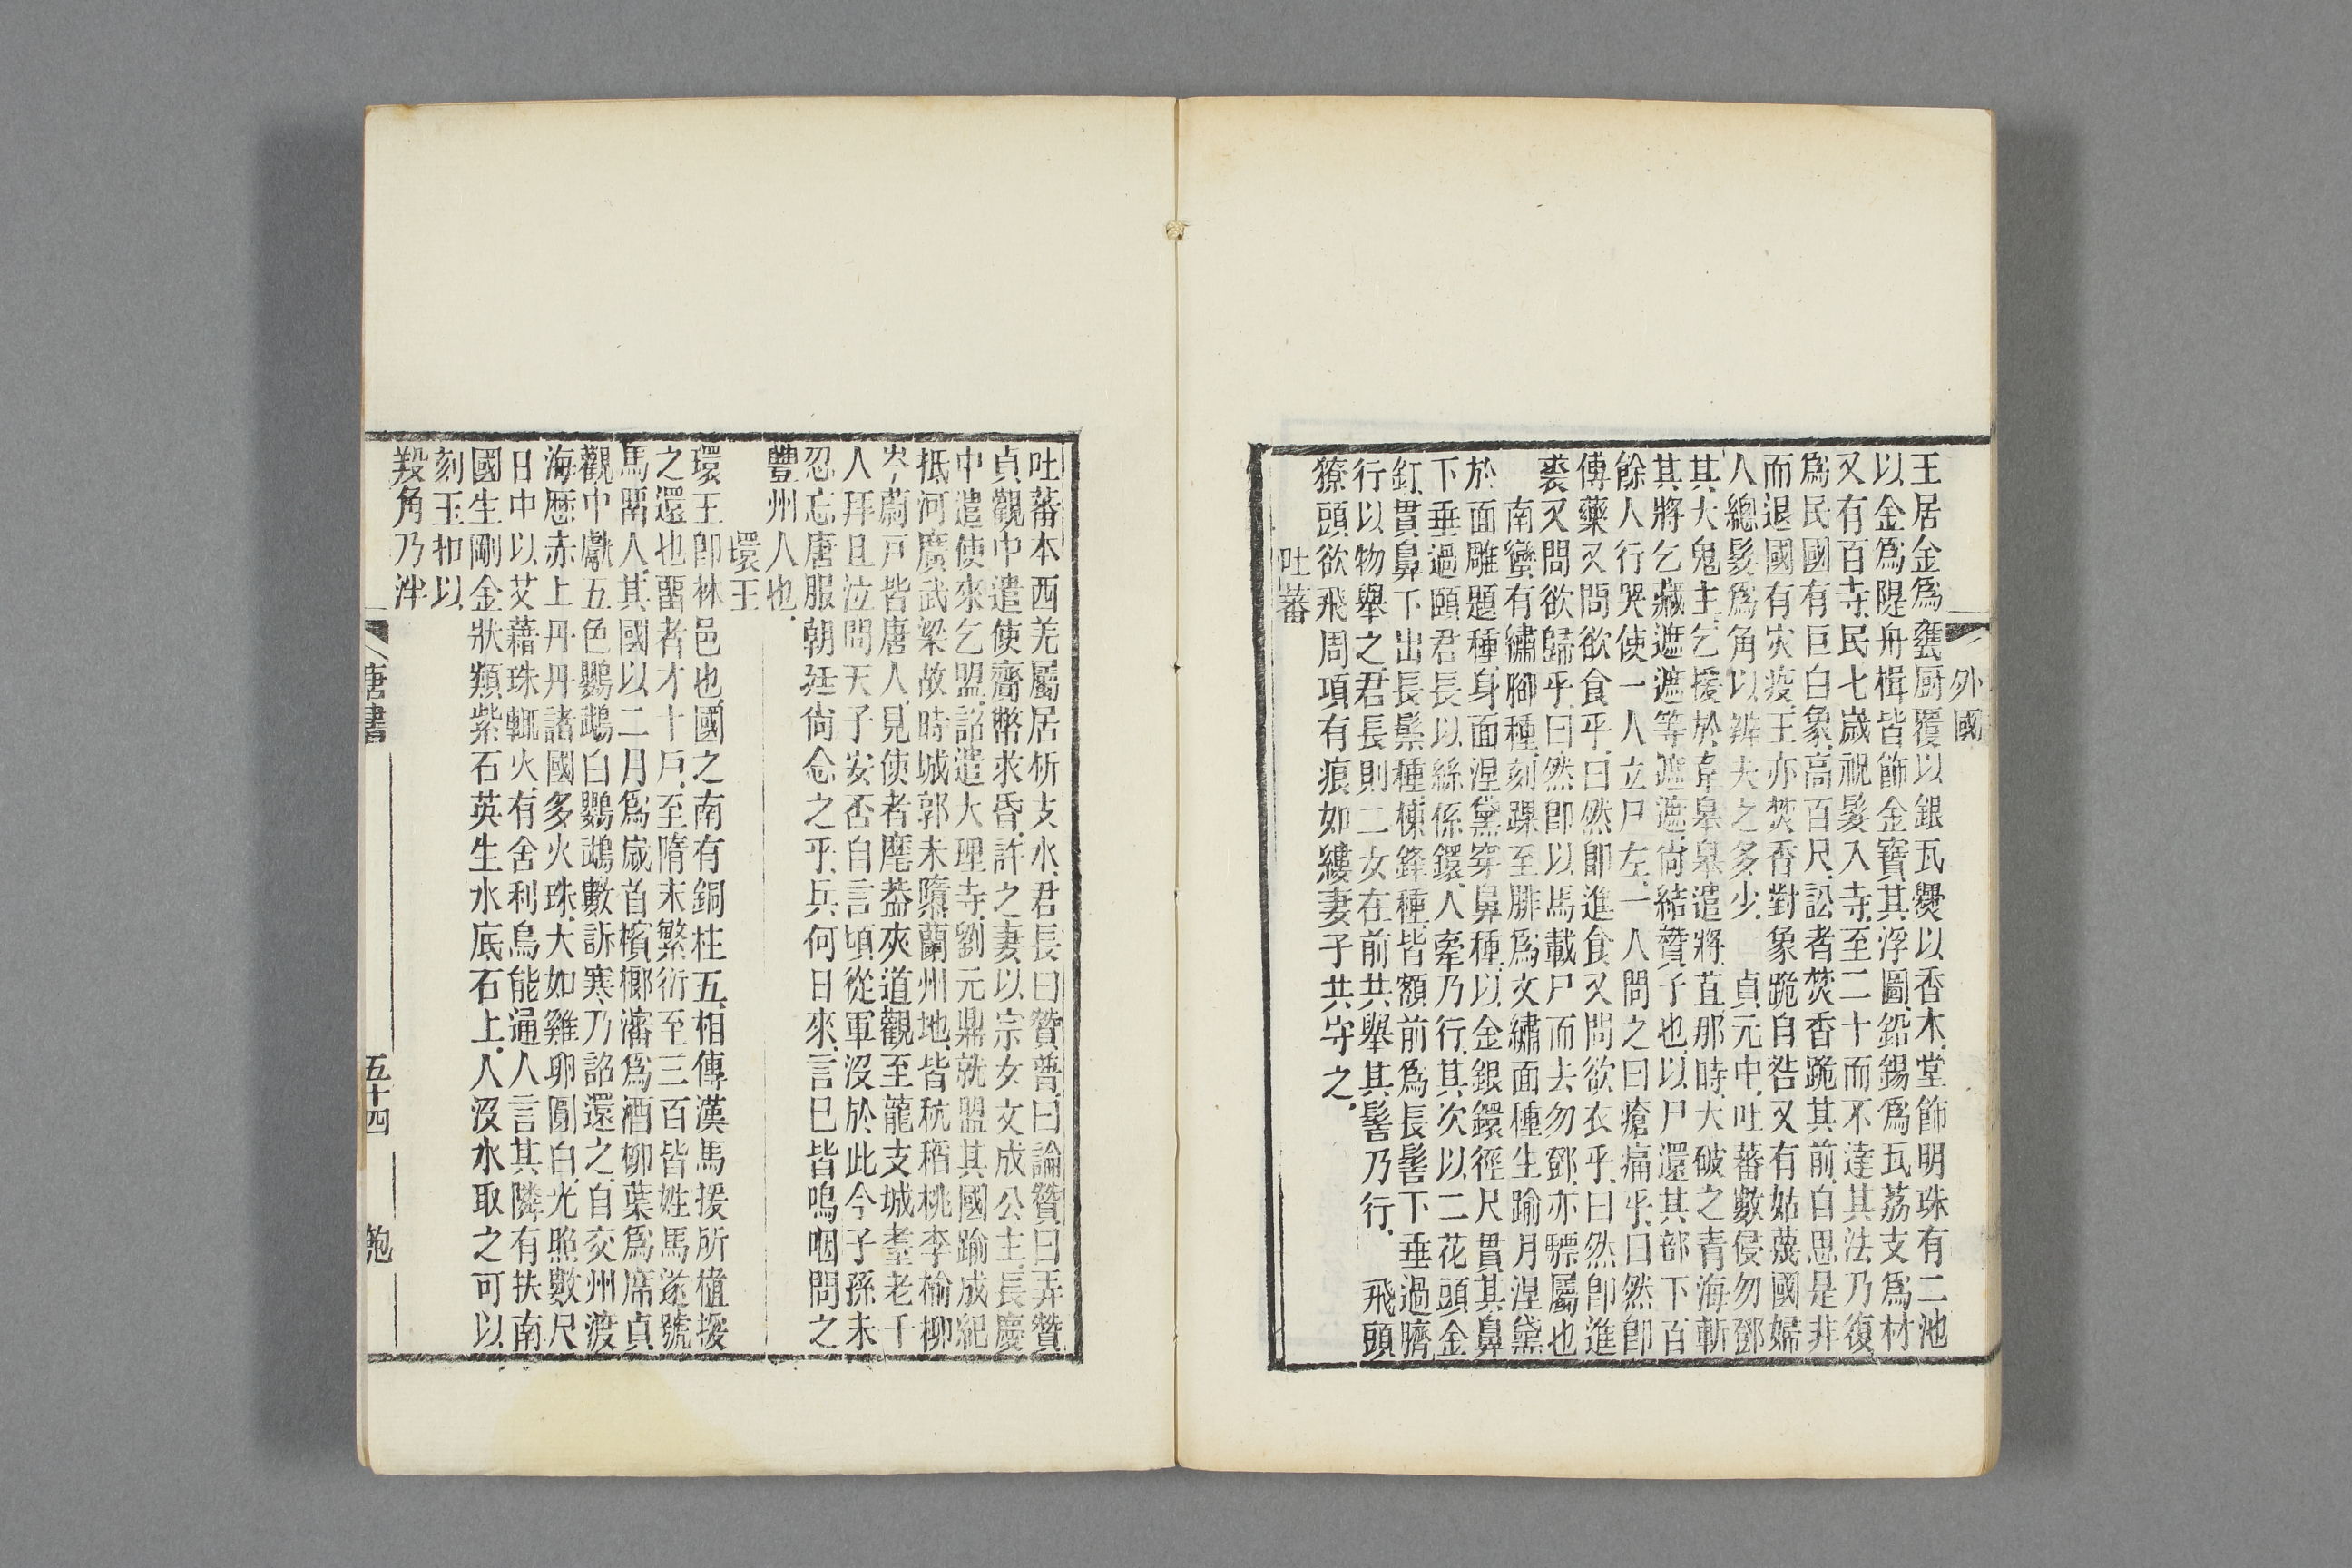 外國
王居金爲甕厨覆以銀瓦爨以香木堂飾明珠有二池
以金爲隄舟楫皆飾金寶其浮圖鉛錫爲瓦荔支爲材
又有百寺民七歲祝髮入寺至二十而不達其法乃復
爲民國有巨白象高百尺訟者焚香跪其前自思是非
而退國有灾疫王亦焚香對象跪自咎又有姑蔑國婦
人總髮爲角以辨夫之多少 貞元中吐蕃數侵勿鄧
其大鬼主乞援於韋皋皋遣將苴那時大破之青海斬
其將乞藏遮遮等遮遮尙結贊子也以尸還其部下百
餘人行哭使一人立尸左一人問之曰瘡痛乎曰然卽
傅藥又問欲食乎曰然卽進食又問欲衣乎曰然卽進
裘又問欲歸乎曰然卽以馬載尸而去勿鄧亦驃屬也
南蠻有繡腳種刻踝至腓爲文繡面種生踰月涅黛
於面雕題種身面涅黛穿鼻種以金銀鐶徑尺貫其鼻
下垂過頤君長以絲係鐶人牽乃行其次以二花頭金
釘貫鼻下出長鬃種棟鋒種皆額前爲長髻下垂過臍
行以物舉之君長則二女在前共舉其髻乃行 飛頭
獠頭欲飛周項有痕如縷妻子共守之
吐蕃
吐蕃本西羌屬居析支水君長曰贊普曰論贊曰弄贊
貞觀中遣使齎幣求昏許之妻以宗女文成公主長慶
中遣使來乞盟詔遣大理寺劉元鼎就盟其國踰成紀
抵河廣武梁故時城郭未隳蘭州地皆秔稻桃李榆柳
岑蔚戸皆唐人見使者麾葢夾道觀至龍支城耋老千
人拜且泣問天子安否自言頃從軍沒於此今子孫未
忍忘唐服朝廷尙念之乎兵何日來言已皆嗚咽問之
豐州人也
環王
環王卽林邑也國之南有銅柱五相傳漢馬援所植援
之還也留者才十戸至隋末繁衍至三百皆姓馬遂號
馬留人其國以二月爲歲首檳榔瀋爲酒椰葉爲席貞
觀中獻五色鸚鵡白鸚鵡數訴寒乃詔還之自交州渡
海歷赤上丹丹諸國多火珠大如雞卵圓白光照數尺
日中以艾藉珠輒火有舍利鳥能通人言其隣有扶南
國生剛金狀類紫石英生水底石上人沒水取之可以
刻玉扣以
羖角乃泮
唐書
五十四
匏